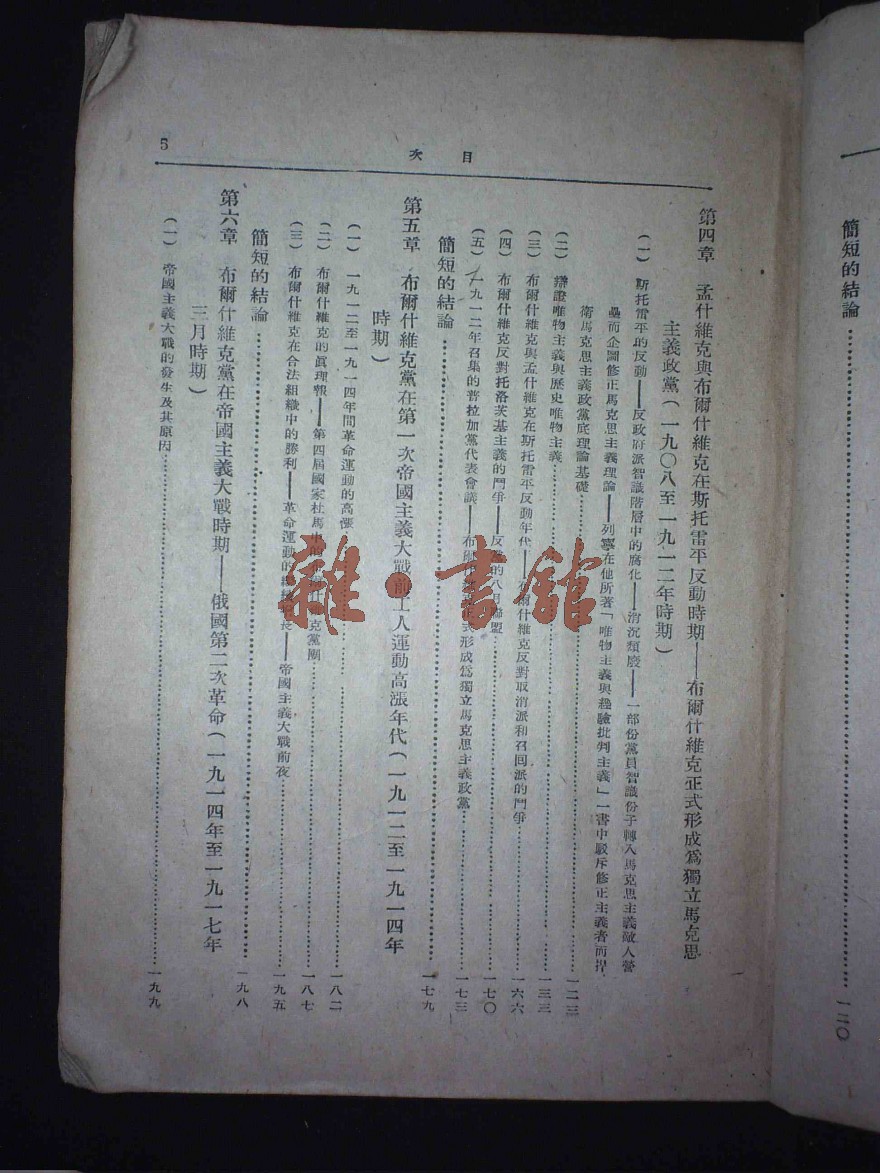 簡短的結論…………一二〇
目次
5
第四章　孟什維克與布爾什維克在斯托雷平反動時期——布爾什維克正式形成爲獨立馬克思
主義政黨(一九〇八至一九一二年時期)
(一)　斯托雷平的反動——反政府派智識階層中的腐化——消沉頹廢——一部份黨員智識份子轉入馬克思主義敵人營
壘而企圖修正馬克思主義理論——列寧在他所著「唯物主義與經驗批判主義」一書中駁斥修正主義者而捍
衛馬克思主義政黨底理論基礎…………一二三
(二)　辯證唯物主義與歷史唯物主義…………一三三
(三)　布爾什維克與孟什維克在斯托雷平反動年代——布爾什維克反對取消派和召回派的鬥爭…………一六六
(四)　布爾什維克反對托洛茨基主義的鬥爭——反黨的八月聯盟…………一七〇
(五)　一九一二年召集的普拉加黨代表會議——布爾什維克正式形成爲獨立馬克思主義政黨…………一七三
簡短的結論…………一七九
第五章　布爾什維克黨在第一次帝國主義大戰前工人運動高漲年代(一九一二至一九一四年
時期)
(一)　一九一二至一九一四年間革命運動的高漲…………一八二
(二)　布爾什維克的眞理報——第四屆國家杜馬中的布爾什維克黨團…………一八七
(三)　布爾什維克在合法組織中的勝利——革命運動的繼續長——帝國主義大戰前夜…………一九五
簡短的結論…………一九八
第六章　布爾什維克黨在帝國主義大戰時期——俄國第二次革命(一九一四年至一九一七年
三月時期)
(一)　帝國主義大戰的發生及其原因…………一九九
雜·書館